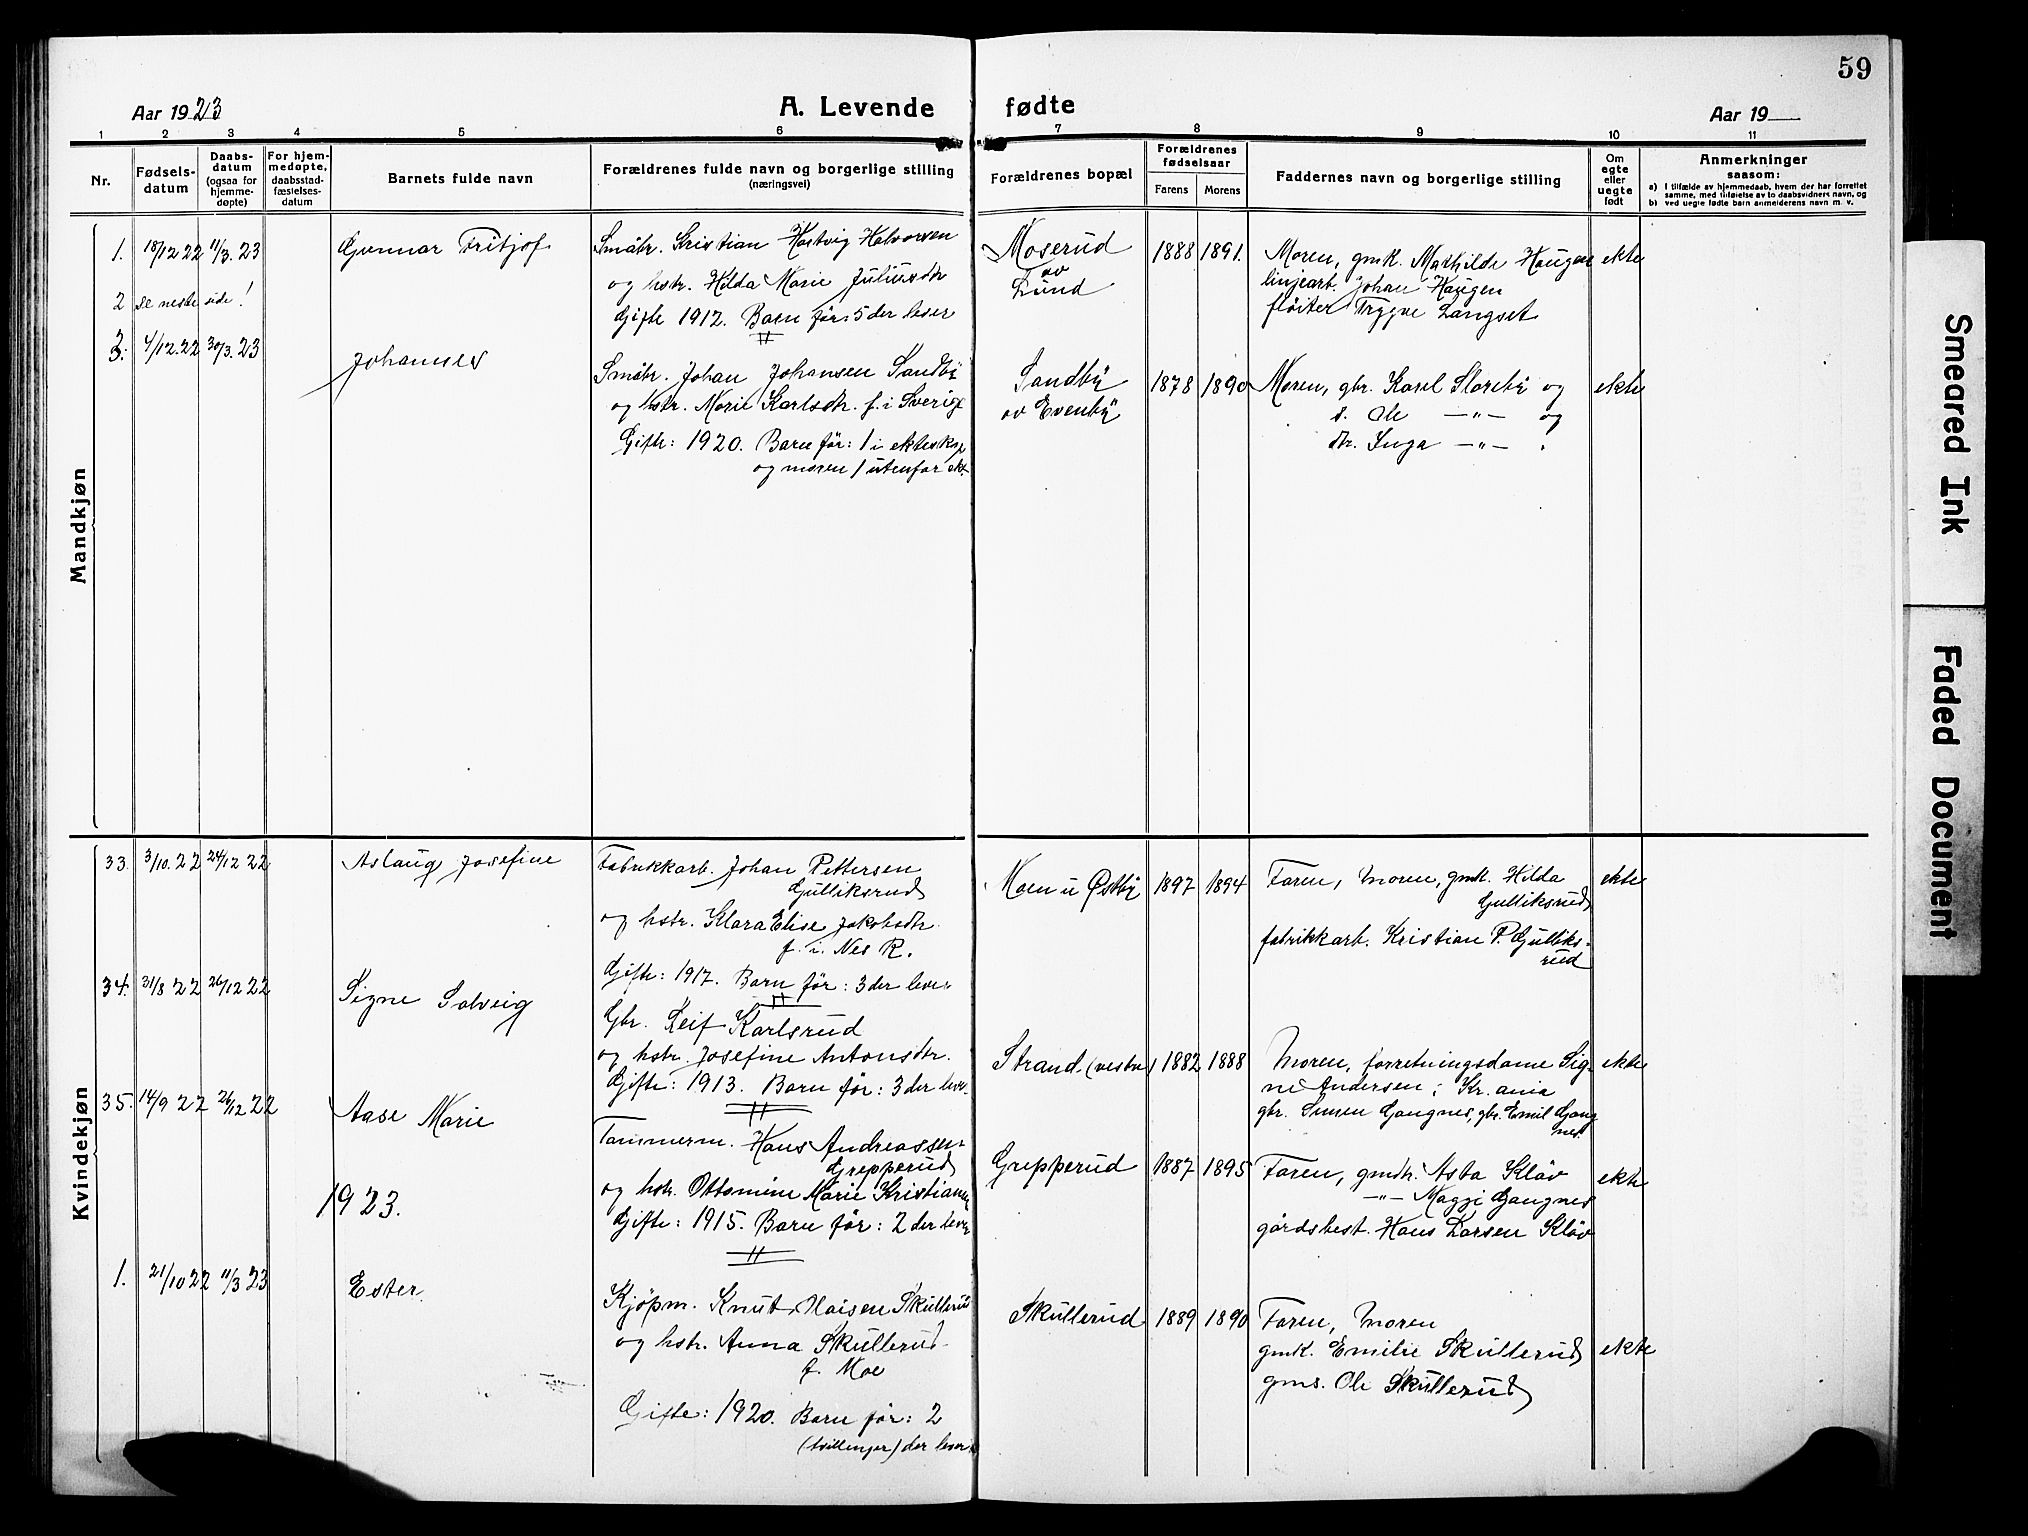 59
Aar 1923
A. Levende
fødte
Aar 19
1 2 3 4 5 6 7 8 9 10 11
Nr.
Fødsels-
datum
Daabs-
datum
(ogsaa for
hjemme-
døpte)
For hjem-
medøpte,
daabsstad-
fæstelses-
datum
Barnets fulde navn
Forældrenes fulde navn og borgerlige stilling
(næringsvei)
Forældrenes bopæl
Forældrenes
fødselsaar
Farens
Morens
Faddernes navn og borgerlige stilling
Om
egte
eller
uegte
født
Anmerkninger
saasom:
a) I tilfælde av hjemmedaab, hvem der har forrettet
samme, med tilføielse av to daabsvidners navn, og
b) ved uegte fødte barn anmelderens navn m. v.
Mandkjøn
1. 18/12 22 11/3. 23
Gunnar Fritjof
Småbr. Kristian Hartvig Halvorsen
og hstr. Hilda Marie Juliusdtr
Gifte 1912. Barn før: 5 der lever
Moserud
av
Lund
1888 1891.
Moren, gmk. Mathilde Haugen
linjearb. Johan Haugen
fløiter Trygve Langset
ekte
2 se neste side!
3. 4/12. 22 30/3. 23
Johannes
Småbr. Johan Johansen Sandby
og hstr. Marie Karlsdtr. f. i Sverige
Gifte: 1920. Barn før: 1 i ektesk.
og moren 1 utenfor ekt.
Sandby
av Evenby
1878 1890
Moren, gbr. Karel Storeby og
s. Ole —"— og
dtr. Inga —"— .
ekte
Kvindekjøn
33. 3/10. 22 24/12 22
Aslaug Josefine
Fabrikkarb. Johan Pettersen
Gulliksrud
og hstr. Klara Elise Jakobsdtr.
f. i. Nes R.
Gifte: 1917. Barn før: 3 der lever
Moen u Østby
1897 1894
Faren, Moren, gmk. Hilda
Gulliksrud
fabrikkarb. Kristian P. Gulliks-
rud
ekte
34. 31/8 22 26/12 22
Signe Solveig
Gbr. Leif Karlsrud
og hstr. Josefine Antonsdtr.
Gifte: 1913. Barn før: 3 der lever
Strand (vestre)
1882 1888
Moren, forretningsdame Sig-
ne Andersen; Kr.ania
gbr. Simen Gangnes, gbr. Emil Gang
nes.
ekte
35. 14/9 22 26/12 22
Aase Marie
Tømmerm. Hans Andreassen
Grepperud
og hstr. Ottomine Marie Kristiansen
Gifte: 1915. Barn før: 2 der lever
Grepperud
1887 1895
Faren, gmdtr. Asta Kløv
—"— Maggi Gangnes
gårdsbest. Hans Larsen Kløv
ekte
1923.
1. 21/10 22 11/3 23
Ester.
Kjøpm. Knut Naisen Skullerud
og hstr. Anna Skullerud
f. Moe
Gifte: 1920. Barn før: 2
(tvillinger) der lever
Skullerud
1889 1890
Faren, Moren
gmk. Emilie Skullerud
gms. Ole Skullerud
ekte
Smeared Ink
Faded Document